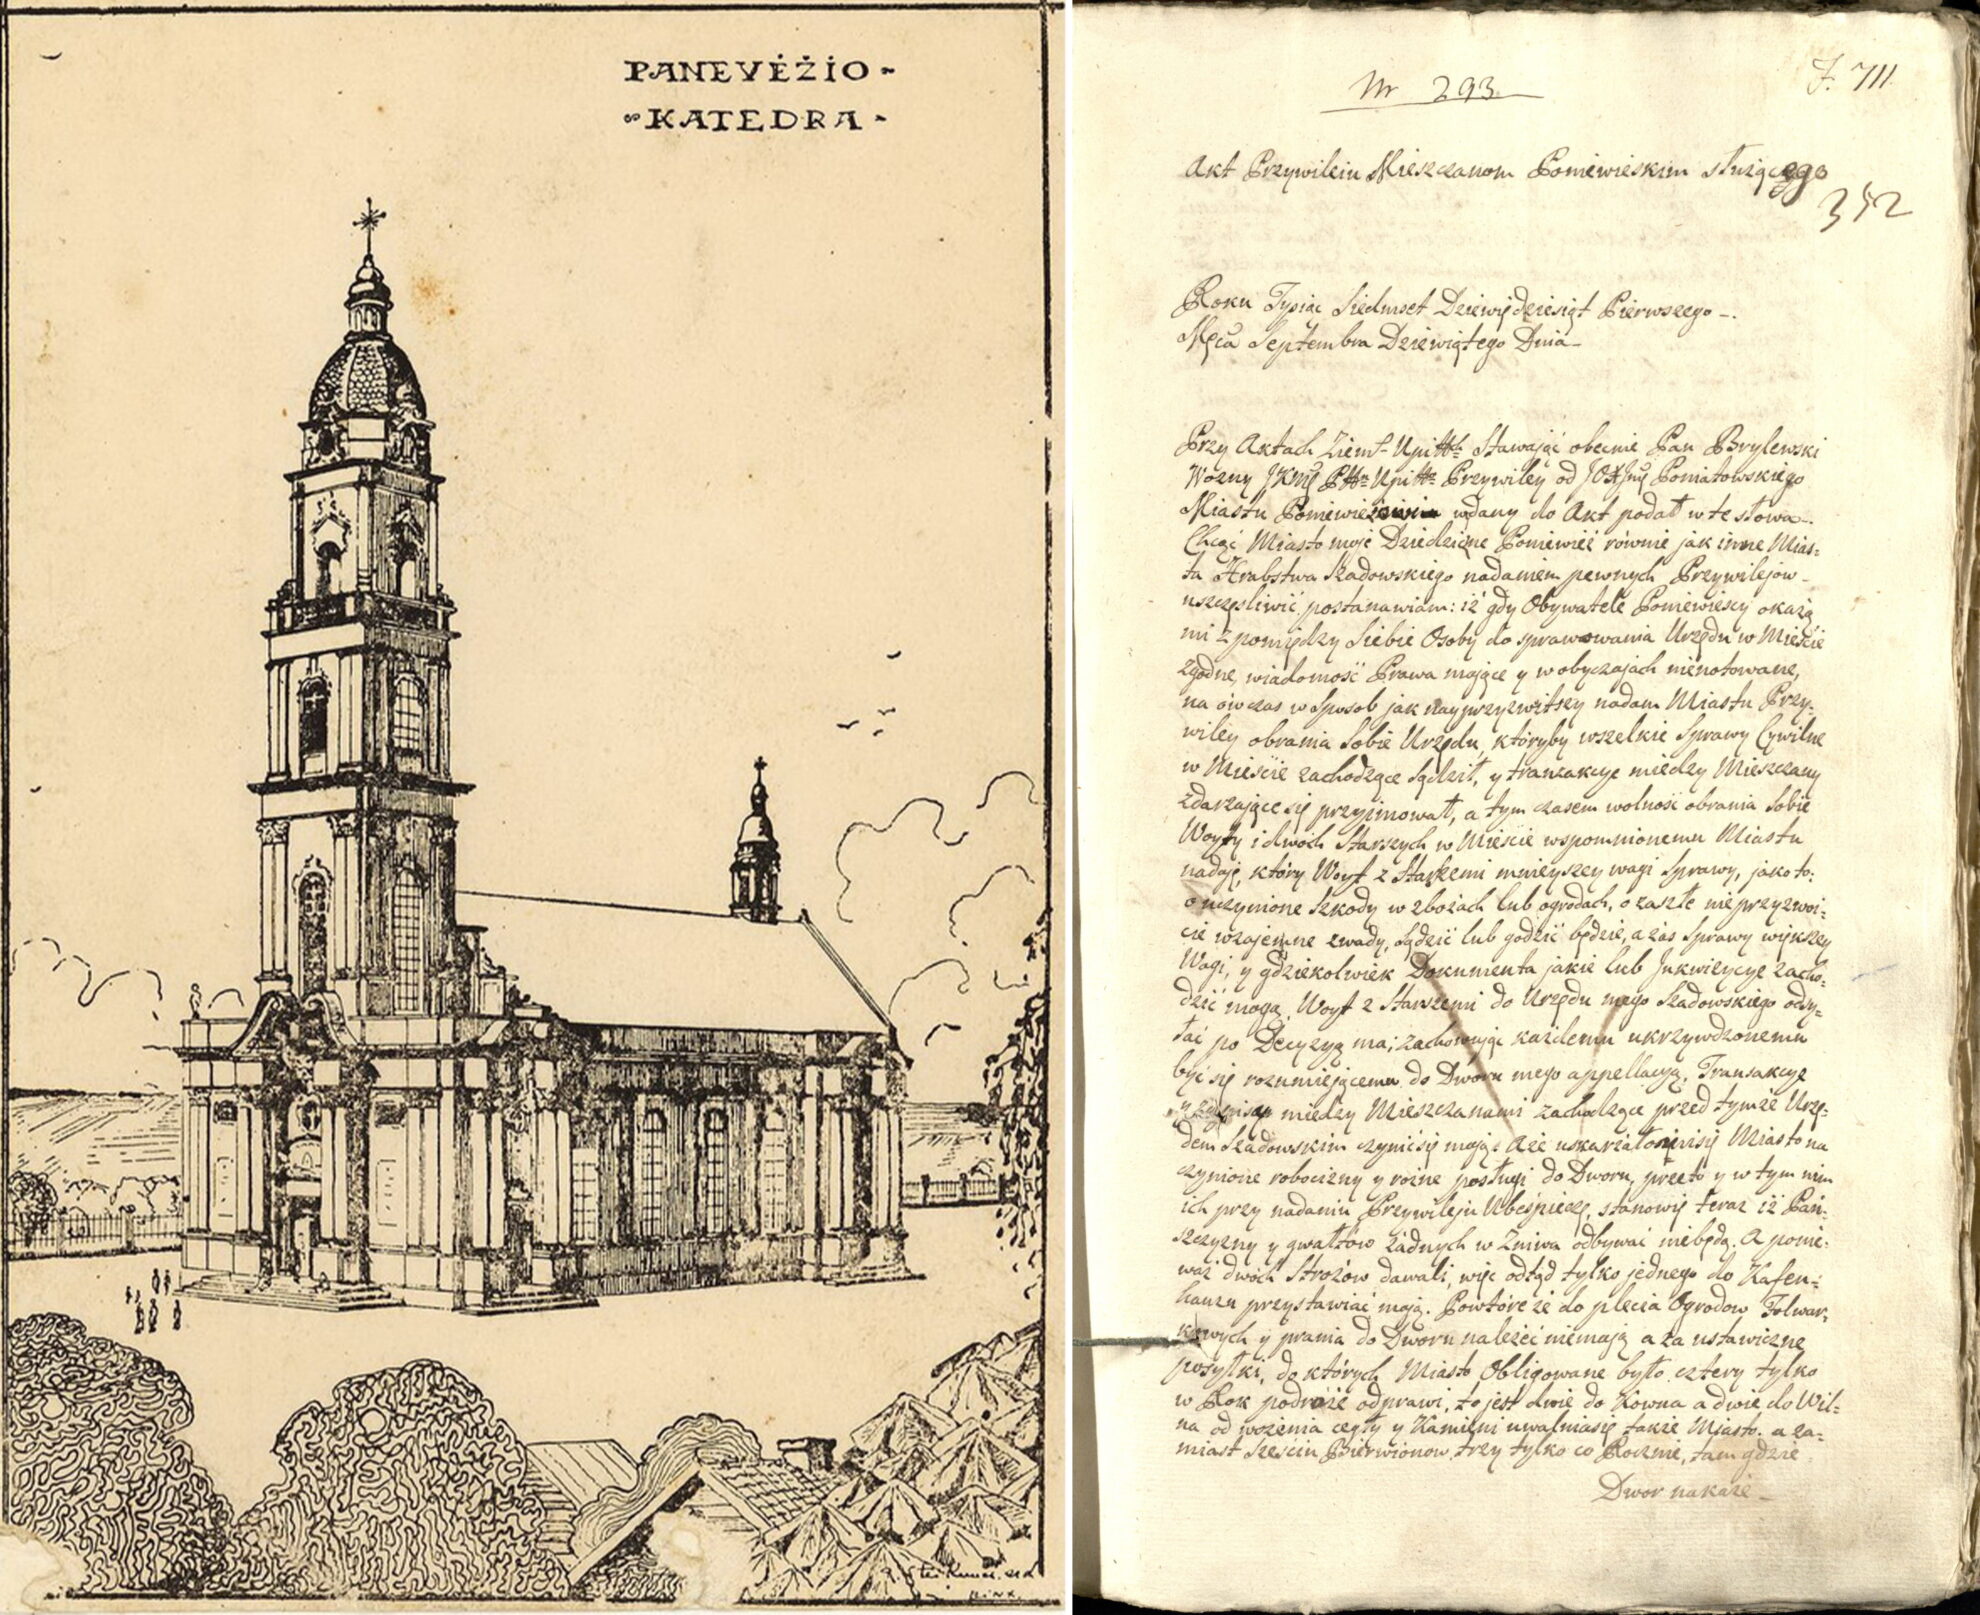 PANEVĖŽIO
KATEDRA
Nr 293.
F. 711.
Akt Przywileiu Mieszczanom Poniewieskim służącego
352
Roku Tysiąc Siedmset Dziewiędziesiąt Pierwszego
Septembra Dziewiątego Dnia
Przy Aktach Ziem Upitt Stawaiąć obecnie Pan Brylewski
Wozny Przywiley od Poniatowskiego
Miastu wdany do Akt podał w te słowa
Chcąć Miasto moje Dziedziczne Poniewież równie jak inne Mias=
ta Hrabstwa Szadowskiego nadaniem pewnych Przywilejow
uszczęsliwić, postanawiam: iż gdy Obywatele Poniewiescy okażą
mi z pomiędzy Siebie Osoby do sprawowania Urzędu w Mieście
zgodne, wiadomość Prawa mające y w obyczajach nienotowane,
na ówczas w Sposob jak nayprzyzwitszy nadam Miastu Przy=
wiley obrania Sobie Urzędu, któryby wszelkie Sprawy Cywilne
w Mieście zachodzące Sądził, y tranzakcye miedzy Mieszczany
zdarzające się przyjmował, a tym czasem wolność obrania Sobie
Woyty i dwóch Starszych w Mieście wspomnionemu Miastu
nadaję, który Woyt z Starszemi mnieyszey wagi Sprawy, jako to:
o uczynione Szkody w zbożach lub ogrodach, o zaszłe nieprzyzwoi=
cie wzajemne zwady, Sądzić lub godzić będzie, a zas Sprawy większey
Wagi, y gdziekolwiek Dokumenta jakie lub Inkwizycye zacho=
dzić mogą, Woyt z Starszemi do Urzędu mego Szadowskiego odsy=
łać po Decyzyą ma; zachowując każdemu ukrzywdzonemu
być się rozumiejącemu do Dworu mego appellacyą. Transakcye
y miedzy Mieszczanami zachodzące przed tymże Urzę=
dem Szadowskim czynić się mają: Aże uskarżało się Miasto na
czynione robocizny y rożne posługi do Dworu, przeto y w tym nim
ich przy nadaniu Przywileju Ubespieczę, stanowię teraz iż Pań=
szczyzny y gwałtow żadnych w Zniwa odbywać niebędą. A ponie=
waż dwóch Strożow dawali, więc odtąd tylko jednego do Kafen=
hauzu przystawiać mają. Powtóre że do plecia Ogrodow Folwar=
kowych y prania do Dworu należeć niemają a za ustawiczne
posyłki, do których Miasto Obligowane było cztery tylko
w Rok podroże odprawi, to jest dwie do Kowna a dwie do Wil=
na od wożenia cegły y Kamieni uwalniasię także Miasto. a za=
miast Szesciu Bierwionow trzy tylko co Rocznie, tam gdzie
Dwor nakaże